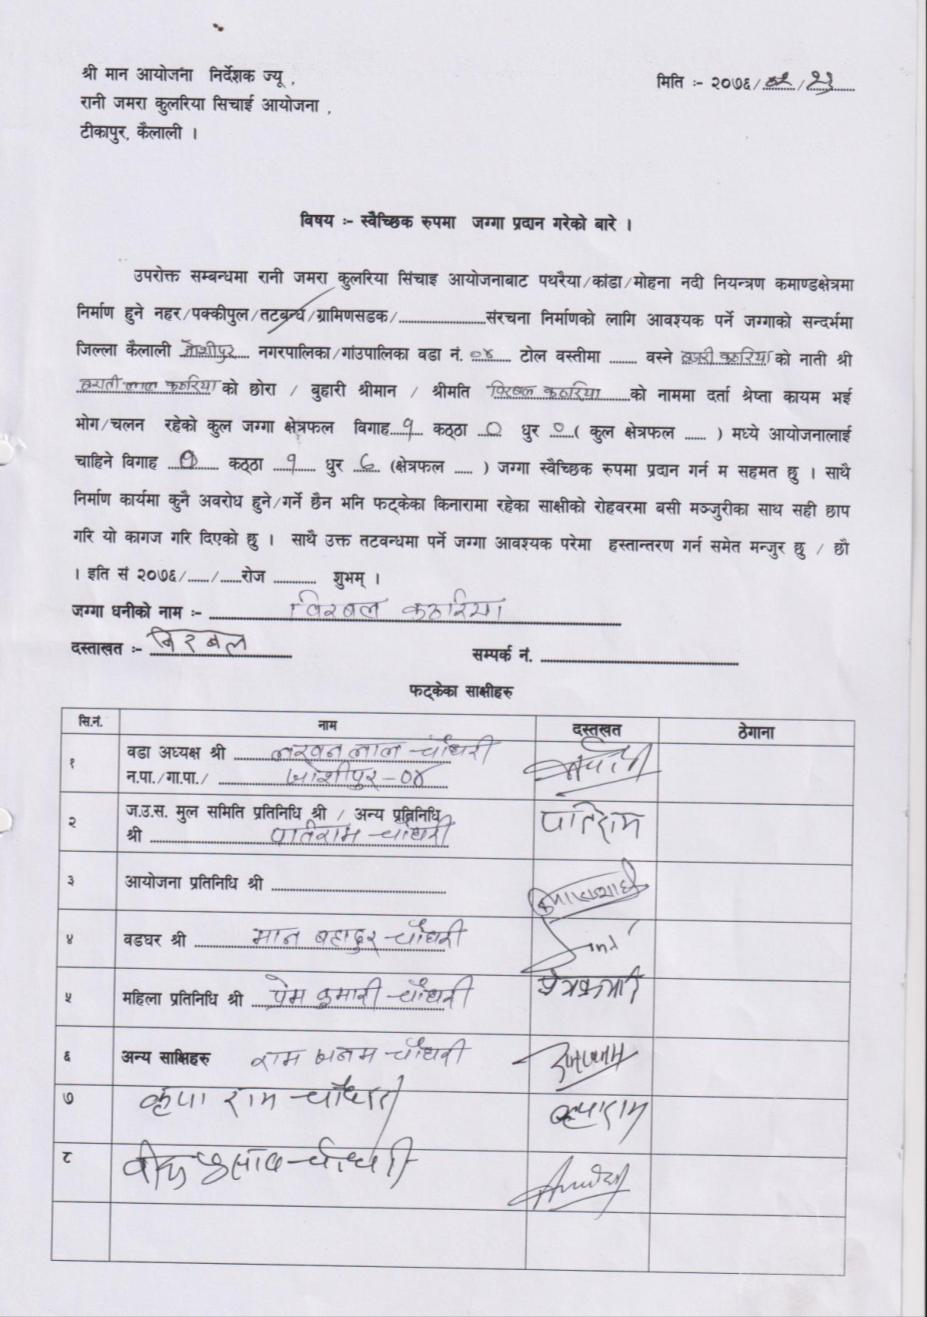 श्री मान आयोजना निर्देशक ज्यू ,
मिति :- २०७६/...../.....
रानी जमरा कुलरिया सिचाई आयोजना ,
टीकापुर, कैलाली ।
विषय :- स्वैच्छिक रुपमा जग्गा प्रदान गरेको बारे ।
उपरोक्त सम्बन्धमा रानी जमरा कुलरिया सिंचाइ आयोजनाबाट पथरैया/कांडा/मोहना नदी नियन्त्रण कमाण्डक्षेत्रमा
निर्माण हुने नहर/पक्कीपुल/तटबन्ध/ग्रामिणसडक/......................संरचना निर्माणको लागि आवश्यक पर्ने जग्गाको सन्दर्भमा
जिल्ला कैलाली जोशीपुर नगरपालिका/गांउपालिका वडा नं. ०४ टोल वस्तीमा ........ वस्ने कठरिया को नाती श्री
लाल कठरिया को छोरा / बुहारी श्रीमान / श्रीमति विरबल कठरिया को नाममा दर्ता श्रेष्ता कायम भई
भोग/चलन रहेको कुल जग्गा क्षेत्रफल विगाह १ कठ्ठा ० धुर ० ( कुल क्षेत्रफल ...... ) मध्ये आयोजनालाई
चाहिने विगाह ० कठ्ठा १ धुर ६ (क्षेत्रफल ..... ) जग्गा स्वैच्छिक रुपमा प्रदान गर्न म सहमत छु । साथै
निर्माण कार्यमा कुनै अवरोध हुने/गर्ने छैन भनि फट्केका किनारामा रहेका साक्षीको रोहवरमा बसी मञ्जुरीका साथ सही छाप
गरि यो कागज गरि दिएको छु । साथै उक्त तटवन्धमा पर्ने जग्गा आवश्यक परेमा हस्तान्तरण गर्न समेत मन्जुर छु / छौ
। इति सं २०७६/....../......रोज ............ शुभम् ।
जग्गा धनीको नाम :- विरबल कठरिया
दस्ताखत :- बिरबल
सम्पर्क नं. ..........................................
फट्केका साक्षीहरु
सि.नं. नाम दस्तखत ठेगाना
१ वडा अध्यक्ष श्री लखन लाल चौधरी
न.पा./गा.पा./ जोशीपुर-०४
२ ज.उ.स. मुल समिति प्रतिनिधि श्री / अन्य प्रतिनिधि
श्री पातिराम चौधरी पातिराम
३ आयोजना प्रतिनिधि श्री ......................................
४ वडघर श्री मान बहादुर चौधरी
५ महिला प्रतिनिधि श्री प्रेम कुमारी चौधरी प्रेमकुमारी
६ अन्य साक्षिहरु राम जनम चौधरी रामजनम
७ कृपा राम चौधरी कृपाराम
८ चौधरी